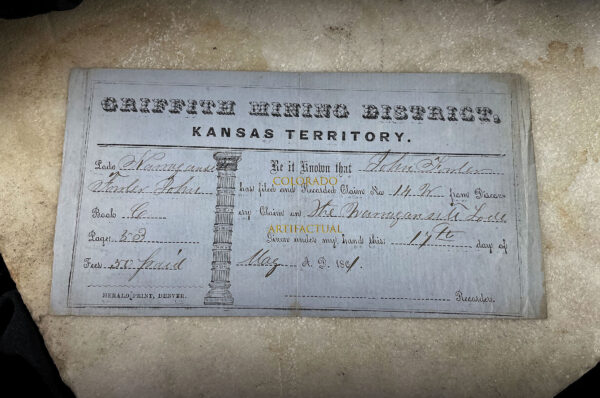 GRIFFITH MINING DISTRICT.
KANSAS TERRITORY.
Lode
Book C
Page 53
Fees 50 paid
HERALD PRINT, DENVER.
Be it Known that John
has filed and Recorded Claim No 14 W from Discov-
ery Claim on The Lode
Given under my hand this 17th day of
May A. D. 1861.
Recorder.
COLORADO
ARTIFACTUAL